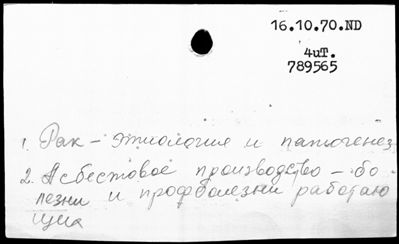 16.10.70.ND
4uT.
789565
1. Рак – этиология и патогенез
2. Асбестовое производство – бо
лезни и профболезни работаю
щих